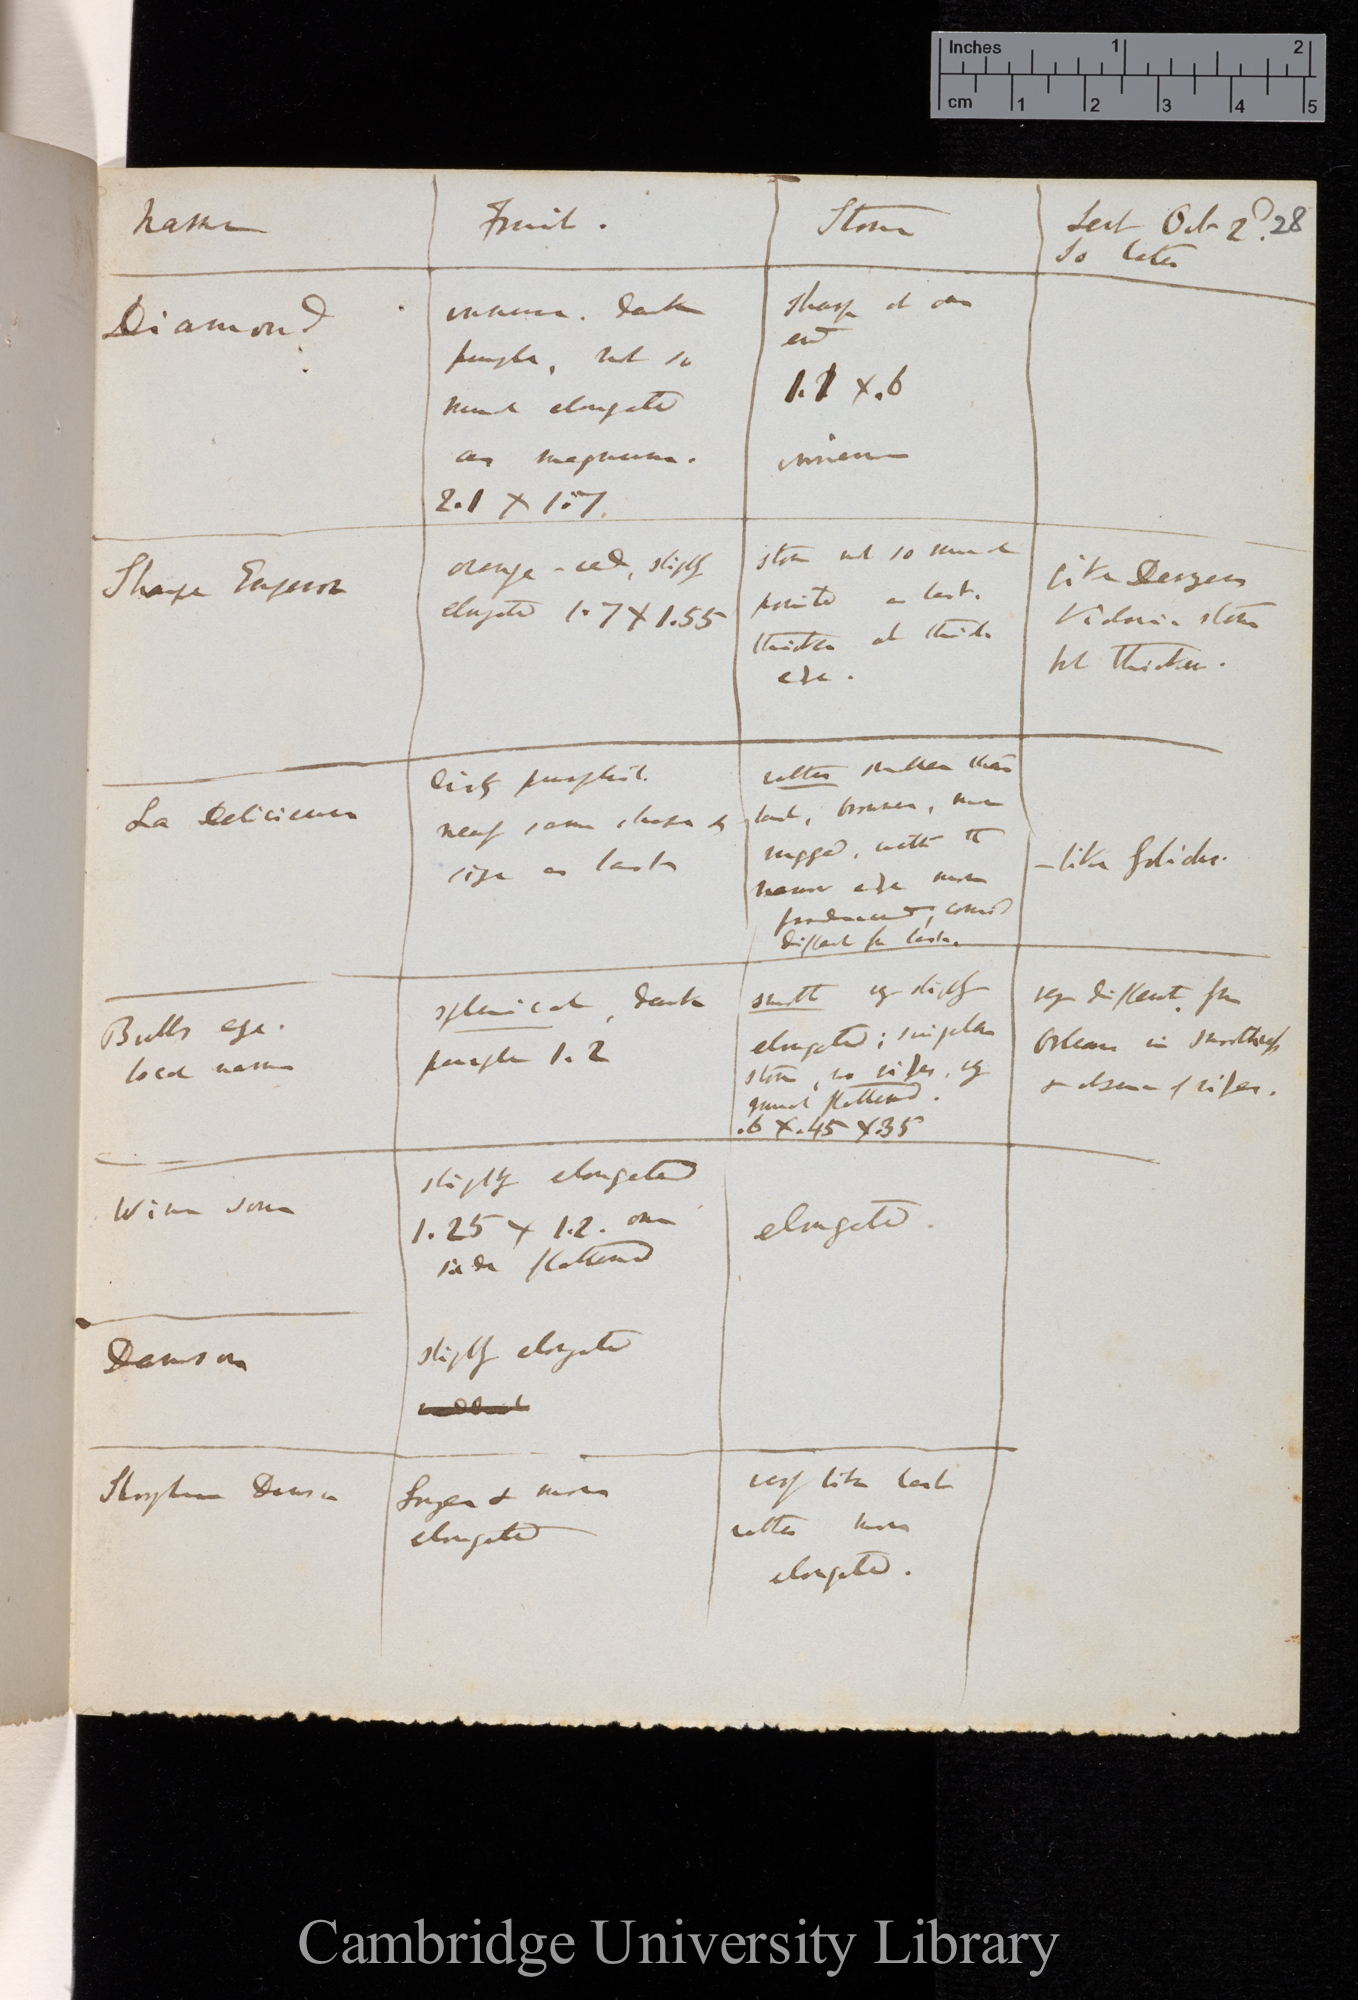 Inches 1 2
cm 1 2 3 4 5
28
Name
Fruit.
Stone
Sent Oct 2d.
So later
Diamond
immense. Dark
purple, not so
much elongated
as magnum.
2.1 × 1.7.
sharp at one
end
1.1 × .6
immense
Sharpe Emperor
orange-red, slightly
elongated 1.7 × 1.55
stone not so much
pointed as last.
thicker at thick
edge.
like Denyers
Victoria stone
but thicker.
La Delicieuse
dirty purplish.
nearly same shape &
size as last
rather smaller than
last, browner, more
rugged, with the
narrow edge more
prominent;
different from last.
Bulls eye.
local name
spherical, dark
purple 1.2
small very slightly
elongated; singular
stone, no ridges, very
much flattened.
.6 × .45 × .35
very different from
Orleans in smoothness
& absence of ridges.
Wine sour
slightly elongated
1.25 × 1.2. one
side flattened
elongated.
Damson
slightly elongated
Shropshire Damson
larger & more
elongated
very like last
rather more
elongated.
Cambridge University Library